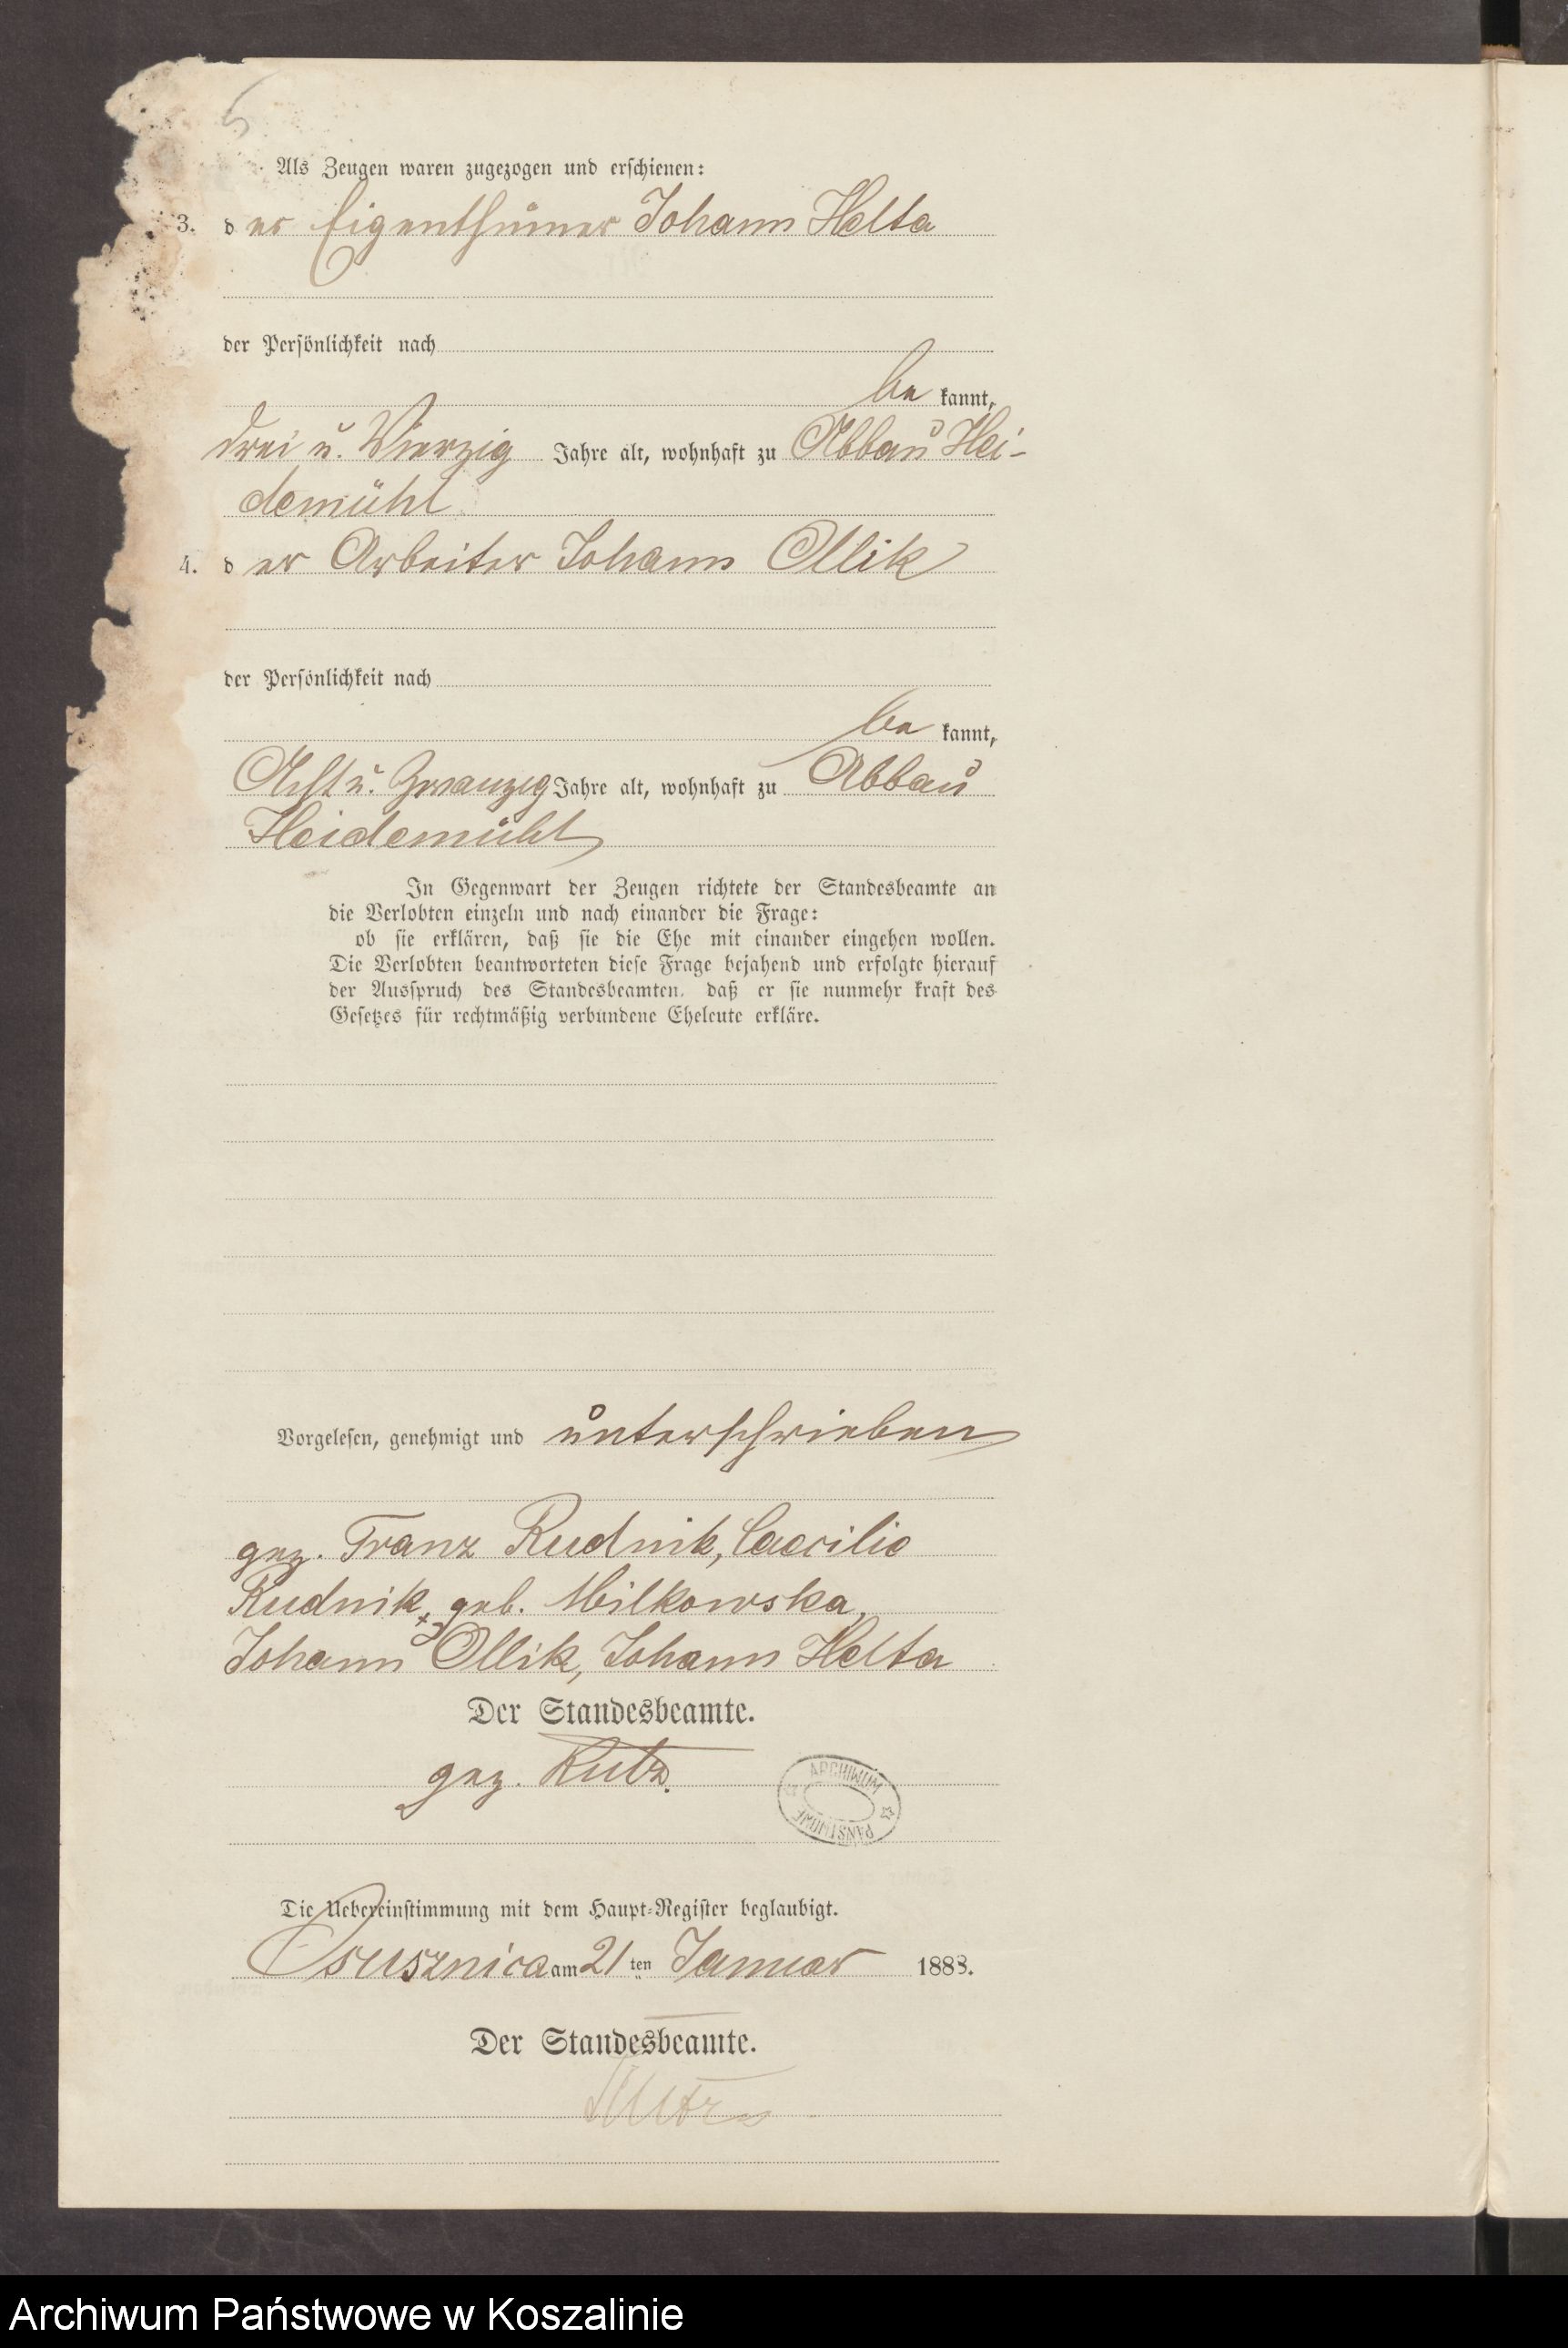 5
Als Zeugen waren zugezogen und erschienen:
3. der Eigenthümer Johann Helta
der Persönlichkeit nach
be kannt,
drei u. Vierzig Jahre alt, wohnhaft zu Abbau Hei-
demühl
4. der Arbeiter Johann Ollik
der Persönlichkeit nach
be kannt,
Acht u. Zwanzig Jahre alt, wohnhaft zu Abbau
Heidemühl
In Gegenwart der Zeugen richtete der Standesbeamte an
die Verlobten einzeln und nach einander die Frage:
ob sie erklären, daß sie die Ehe mit einander eingehen wollen.
Die Verlobten beantworteten diese Frage bejahend und erfolgte hierauf
der Ausspruch des Standesbeamten, daß er sie nunmehr kraft des
Gesetzes für rechtmäßig verbundene Eheleute erkläre.
Vorgelesen, genehmigt und unterschrieben
gez. Franz Rudnik, Caecilie
Rudnik, geb. Milkowska,
Johann Ollik, Johann Helta
Der Standesbeamte.
gez. Kutz.
ARCHIWUM PAŃSTWOWE
Die Uebereinstimmung mit dem Haupt-Register beglaubigt.
Osusznica am 21 ten Januar 1888.
Der Standesbeamte.
Kutz
Archiwum Państwowe w Koszalinie